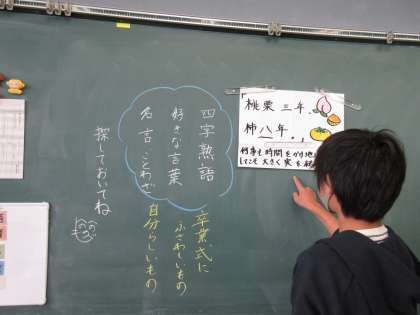 桃栗三年、
柿八年。
何事も時間をかけ
してこそ大きく実を
四字熟語
好きな言葉
名言ことわざ
卒業式に
ふさわしいもの
自分らしいもの
探しておいてね